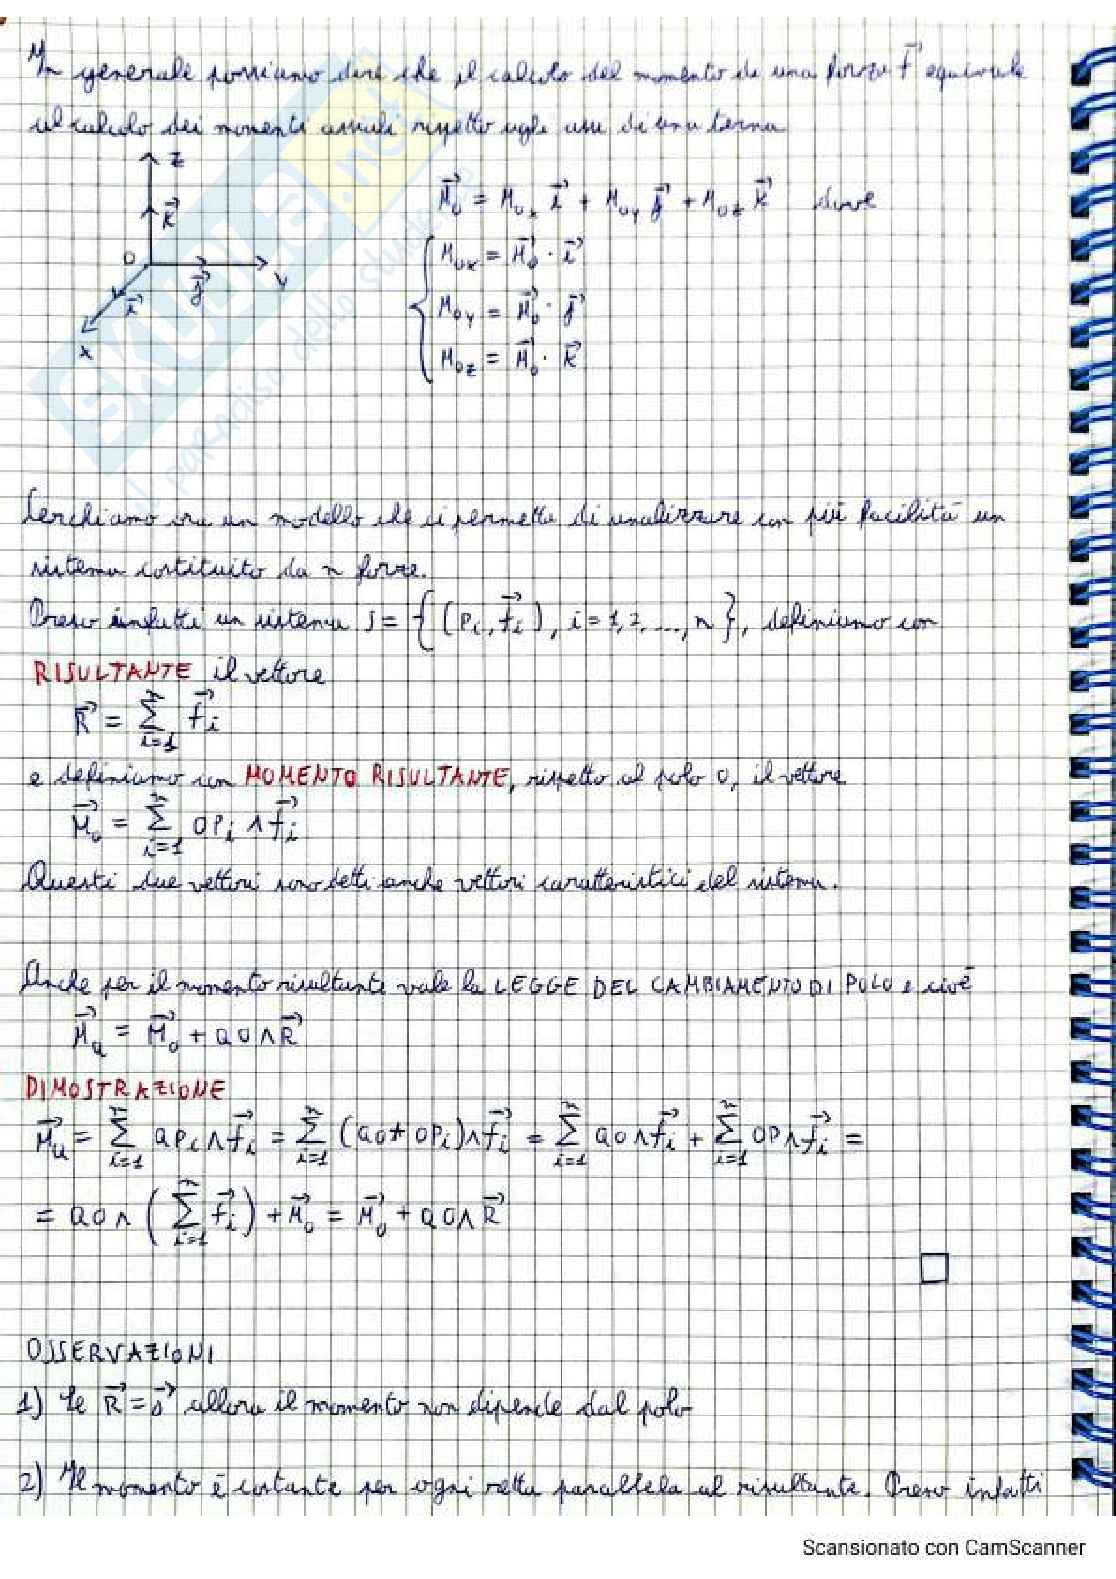 In generale possiamo dire che il calcolo del momento di una forza f⃗ equivale
al calcolo dei momenti assiali rispetto agli assi di una terna
z
k⃗
O
j⃗
y
i⃗
x
M⃗₀ = M₀ₓ i⃗ + M₀y j⃗ + M₀z k⃗ dove
M₀ₓ = M⃗₀ · i⃗
M₀y = M⃗₀ · j⃗
M₀z = M⃗₀ · k⃗
SKUOLA.net
il paradiso dello studente
Cerchiamo ora un modello che ci permetta di analizzare con più facilità un
sistema costituito da n forze.
Preso infatti un sistema S = {(Pᵢ, f⃗ᵢ), i = 1, 2, ..., n}, definiamo con
RISULTANTE il vettore
R⃗ = Σᵢ₌₁ⁿ f⃗ᵢ
e definiamo con MOMENTO RISULTANTE, rispetto al polo O, il vettore
M⃗₀ = Σᵢ₌₁ⁿ OPᵢ ∧ f⃗ᵢ
Questi due vettori sono detti anche vettori caratteristici del sistema.
Anche per il momento risultante vale la LEGGE DEL CAMBIAMENTO DI POLO e cioè
M⃗_Q = M⃗₀ + QO ∧ R⃗
DIMOSTRAZIONE
M⃗_Q = Σᵢ₌₁ⁿ QPᵢ ∧ f⃗ᵢ = Σᵢ₌₁ⁿ (QO + OPᵢ) ∧ f⃗ᵢ = Σᵢ₌₁ⁿ QO ∧ f⃗ᵢ + Σᵢ₌₁ⁿ OP ∧ f⃗ᵢ =
= QO ∧ (Σᵢ₌₁ⁿ f⃗ᵢ) + M⃗₀ = M⃗₀ + QO ∧ R⃗
OSSERVAZIONI
1) Se R⃗ = 0⃗ allora il momento non dipende dal polo
2) Il momento è costante per ogni retta parallela al risultante. Preso infatti
Scansionato con CamScanner